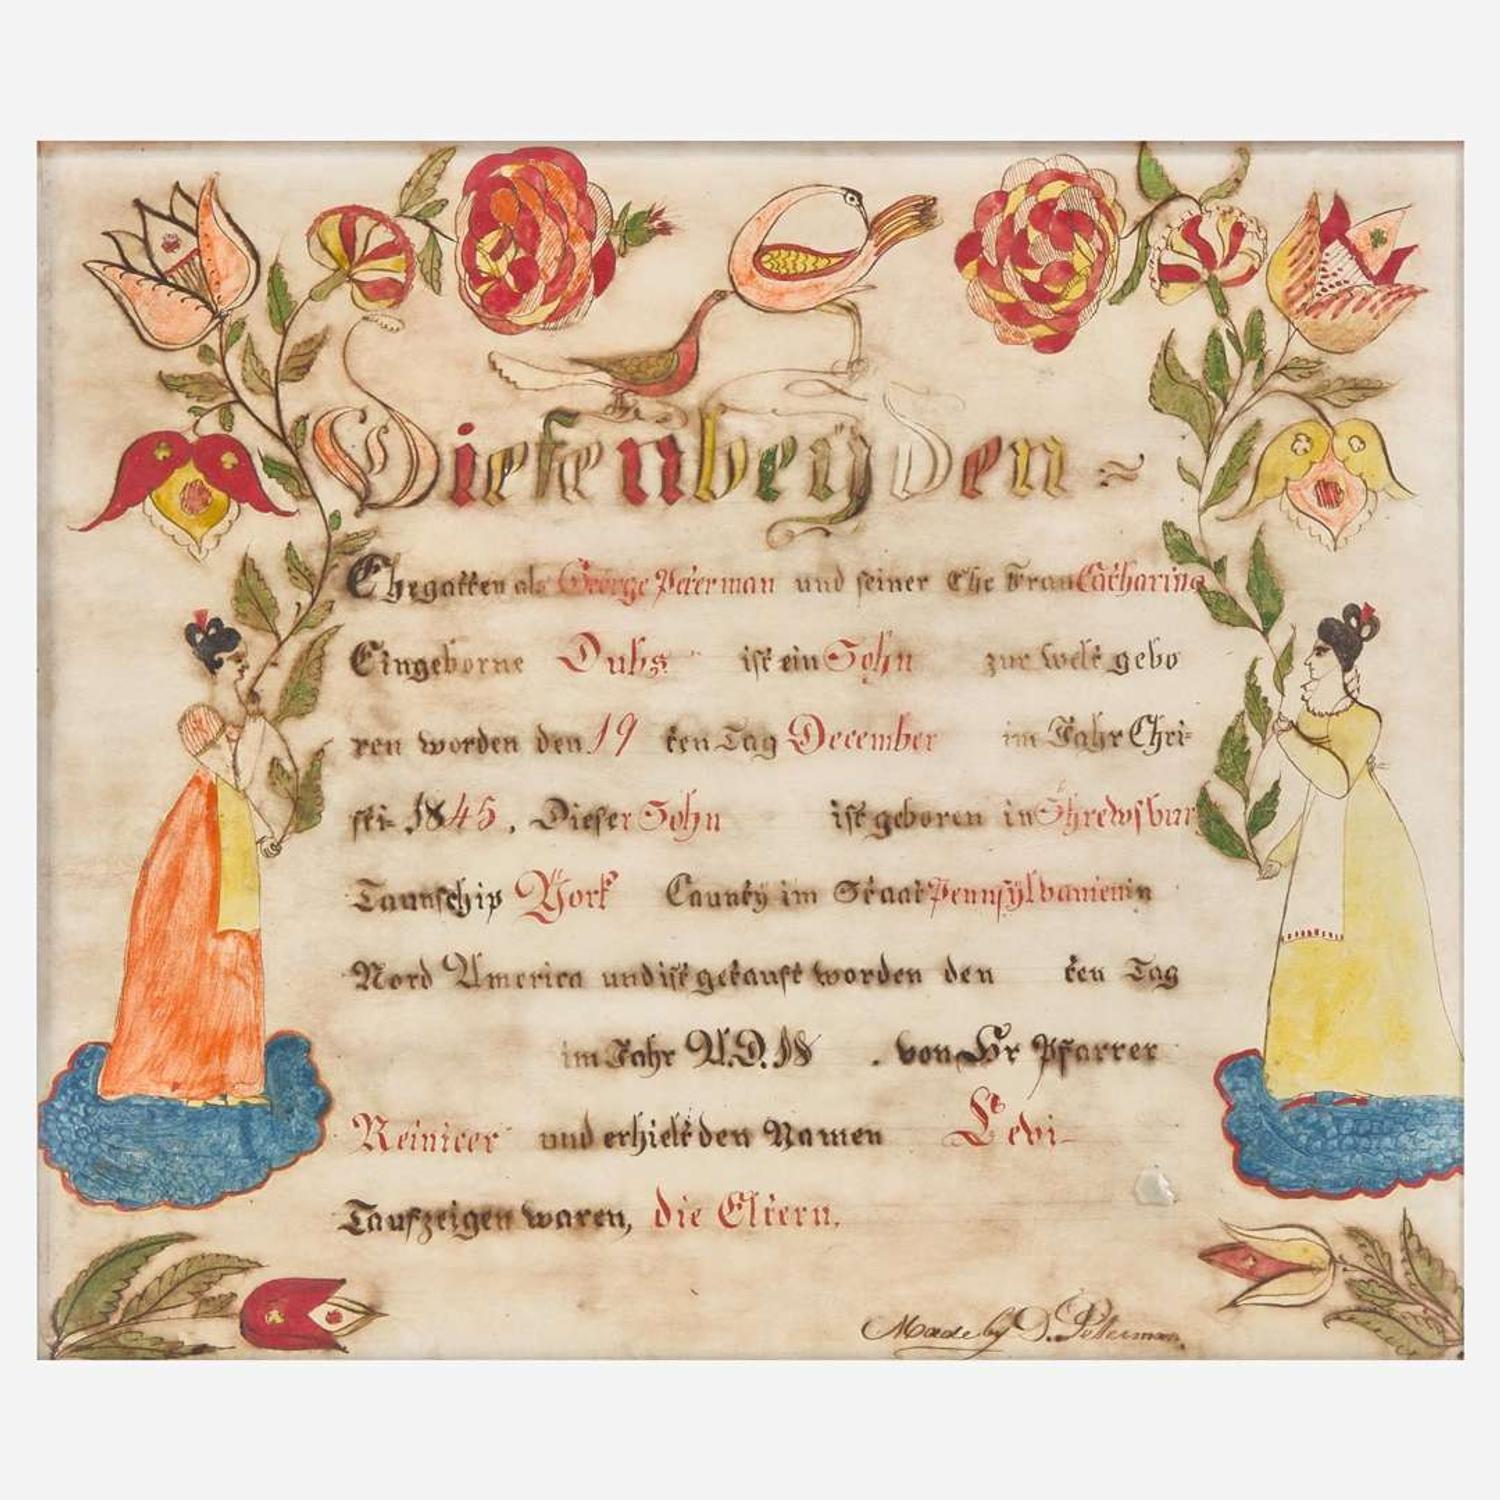 Diesenbeyden ~
Ehegatten als George Peterman und seiner Ehe Frau Catharina
Eingeborne Dubs ist ein Sohn zur welt gebo
ren worden den 19 ten Tag December im Jahr Chri=
sti= 1845. Dieser Sohn ist geboren in Shrewsbury
Taunschip York Caunty im Staat Pennsylvanien in
Nord America und ist getauft worden den ten Tag
im Jahr A.D. 18 . von Hr Pfarrer
Reinicer und erhielt den Namen Levi
Taufzeigen waren, die Eltern.
Made by D. Peterman.